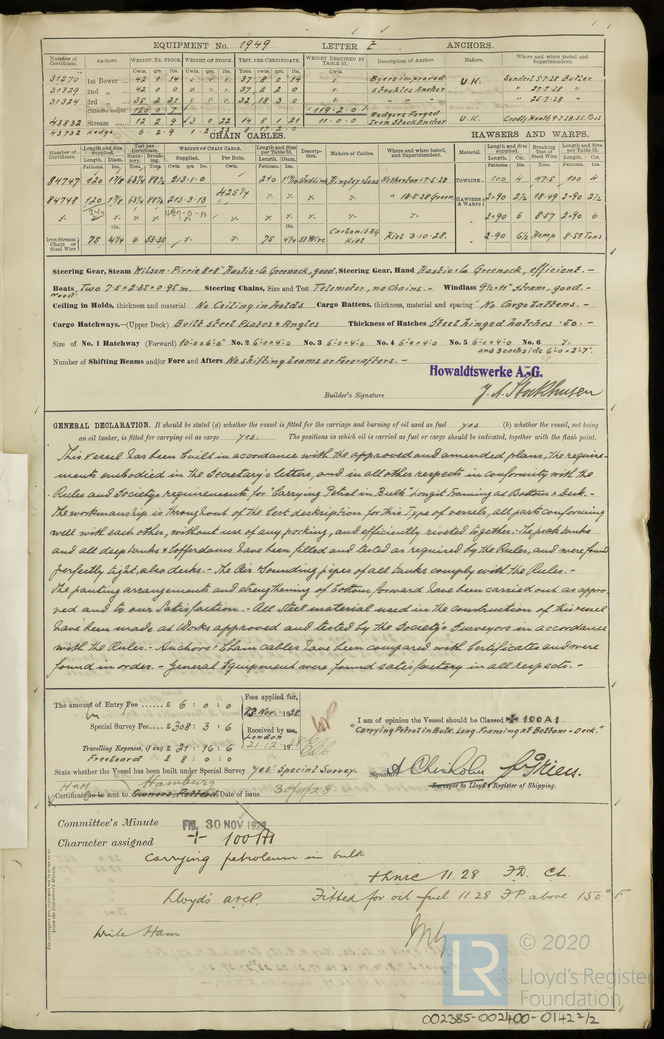 EQUIPMENT No. 1949 LETTER Σ ANCHORS.
Number of Certificate. Anchors. WEIGHT, EX. STOCK. WEIGHT OF STOCK. TEST, PER CERTIFICATE. WEIGHT REQUIRED BY TABLE 53. Description of Anchor. Makers. Where and when tested and Superintendent.
Cwts. qrs. lbs. Cwts. qrs. lbs. Cwts.
31270 1st Bower 42 1 14 37 2 0 14 Byers improved U.K. Sunderld 5.7.28 Butler
31329 2nd „ 42 0 0 37 2 2 0 Stockless Anchor " 27.7.28 "
31324 3rd „ 35 2 21 32 18 3 0 " " " " 25.7.28 "
120 0 7 119.2.0
43832 Stream 12 2 9 3 0 22 14 8 1 21 11.0.0 Rodgers Forged Iron Stock Anchor U.K.
43732 Kedge 6 2 9
CHAIN CABLES. HAWSERS AND WARPS.
Number of Certificate. Length and size supplied. Test per Certificate. WEIGHT OF CHAIN CABLE. Length and size per Table 53. Description. Makers of Cables. Where and when tested, and Superintendent. Material Length and size supplied. Breaking Test of Steel Wire. Length and size per Table 53.
Length. Diam. Supplied. Per Rule. Length. Diam. Fathoms. Ins. Tons.
84747 120 213.1.0 240 Studlink Hingley & Sons Netherton 17.5.28 TOWLINE 100 4 47.5 100 4
84748 120 213.3.13 425¼ " 18.5.28 Green HAWSERS & WARPS 2-90 2½ 18.49 2-90 2½
2-90 6 8.57 2-90 6
Iron Stream Chain or Steel Wire 75 4¼ 53.35 75 4¼ SS Wire Kiel Kiel 3.10.28. 2-90 6½ Hemp 8.57 Tons
Steering Gear, Steam Wilson-Pirrie 8×8" Hastie & Co Greenock, good. Steering Gear, Hand Hastie & Co Greenock, efficient. -
Boats, Two 7.5×2.35×0.95 m. Steering Chains, Size and Test Telemotor, no Chains. - Windlass 9½×11" Steam, good. -
wood
Ceiling in Holds, thickness and material No Ceiling in holds Cargo Battens, thickness, material and spacing No Cargo battens. -
Cargo Hatchways.—(Upper Deck) Built Steel Plates & Angles Thickness of Hatches Steel hinged hatches .50. -
Size of No. 1 Hatchway (Forward) 10'-0"×6'-0" No. 2 6'-0×4'-0 No. 3 6'-0×4'-0 No. 4 6'-0×4'-0 No. 5 6'-0×4'-0 No. 6
and 3 each side 6'-0×3'-7"
Number of Shifting Beams and/or Fore and Afters No shifting beams or Fore & afters. -
Howaldtswerke A.-G.
Builder's Signature
GENERAL DECLARATION. It should be stated (a) whether the vessel is fitted for the carriage and burning of oil used as fuel yes (b) whether the vessel, not being
an oil tanker, is fitted for carrying oil as cargo yes. The positions in which oil is carried as fuel or cargo should be indicated, together with the flash point.
This vessel has been built in accordance with the approved and amended plans, The require-
ments embodied in the Secretary's letters, and in all other respects in conformity with the
Rules and Society's requirements for "Carrying Petrol in Bulk" Longit Framing at Bottom & deck. -
The workmanship is throughout of the best deskription for this Type of vessels, all parts conforming
well with each other, without use of any packing, and efficiently riveted together. - The peak tanks
and all deep tanks & Cofferdams have been filled and tested as required by the Rules, and were found
perfectly tight, also decks. - The Air & Sounding pipes of all tanks comply with the Rules. -
The panting arrangements and strengthening of bottom forward have been carried out as appro-
ved and to our satisfaction. - All Steel material used in the construction of this vessel
have been made at Works approved and tested by the Society's Surveyors in accordance
with the Rules. - Anchors & Chain cables have been compared with Certificates and were
found in order. - General Equipment were found satisfactory in all respects. -
The amount of Entry Fee £ 6 : 0 : 0 Fees applied for, 23 Nov. 1928
Special Survey Fee £ 308 : 3 : 6 Received by me, London
Travelling Expenses, if any £ 21 : 16 : 6 21.12.19
Freeboard £ 8 : 0 : 0
I am of opinion the Vessel should be Classed ✠ 100A1
"Carrying Petrol in Bulk. Long. Framing at Bottom & Deck."
State whether the Vessel has been built under Special Survey Yes: Special Survey.
Signature A. Chisholm
Surveyor to Lloyd's Register of Shipping.
Ham Hamburg
Certificate to be sent to Date of issue 30/11/28
Committee's Minute FRI. 30 NOV 1928
Character assigned + 100A1
Carrying petroleum in bulk
+LMC 11.28 FD. CL.
Lloyd's A&CP. Fitted for oil fuel 11.28 FP. above 150° F
Write Ham
LR © 2020
Lloyd's Register
Foundation
002385-002400-0142 2/2